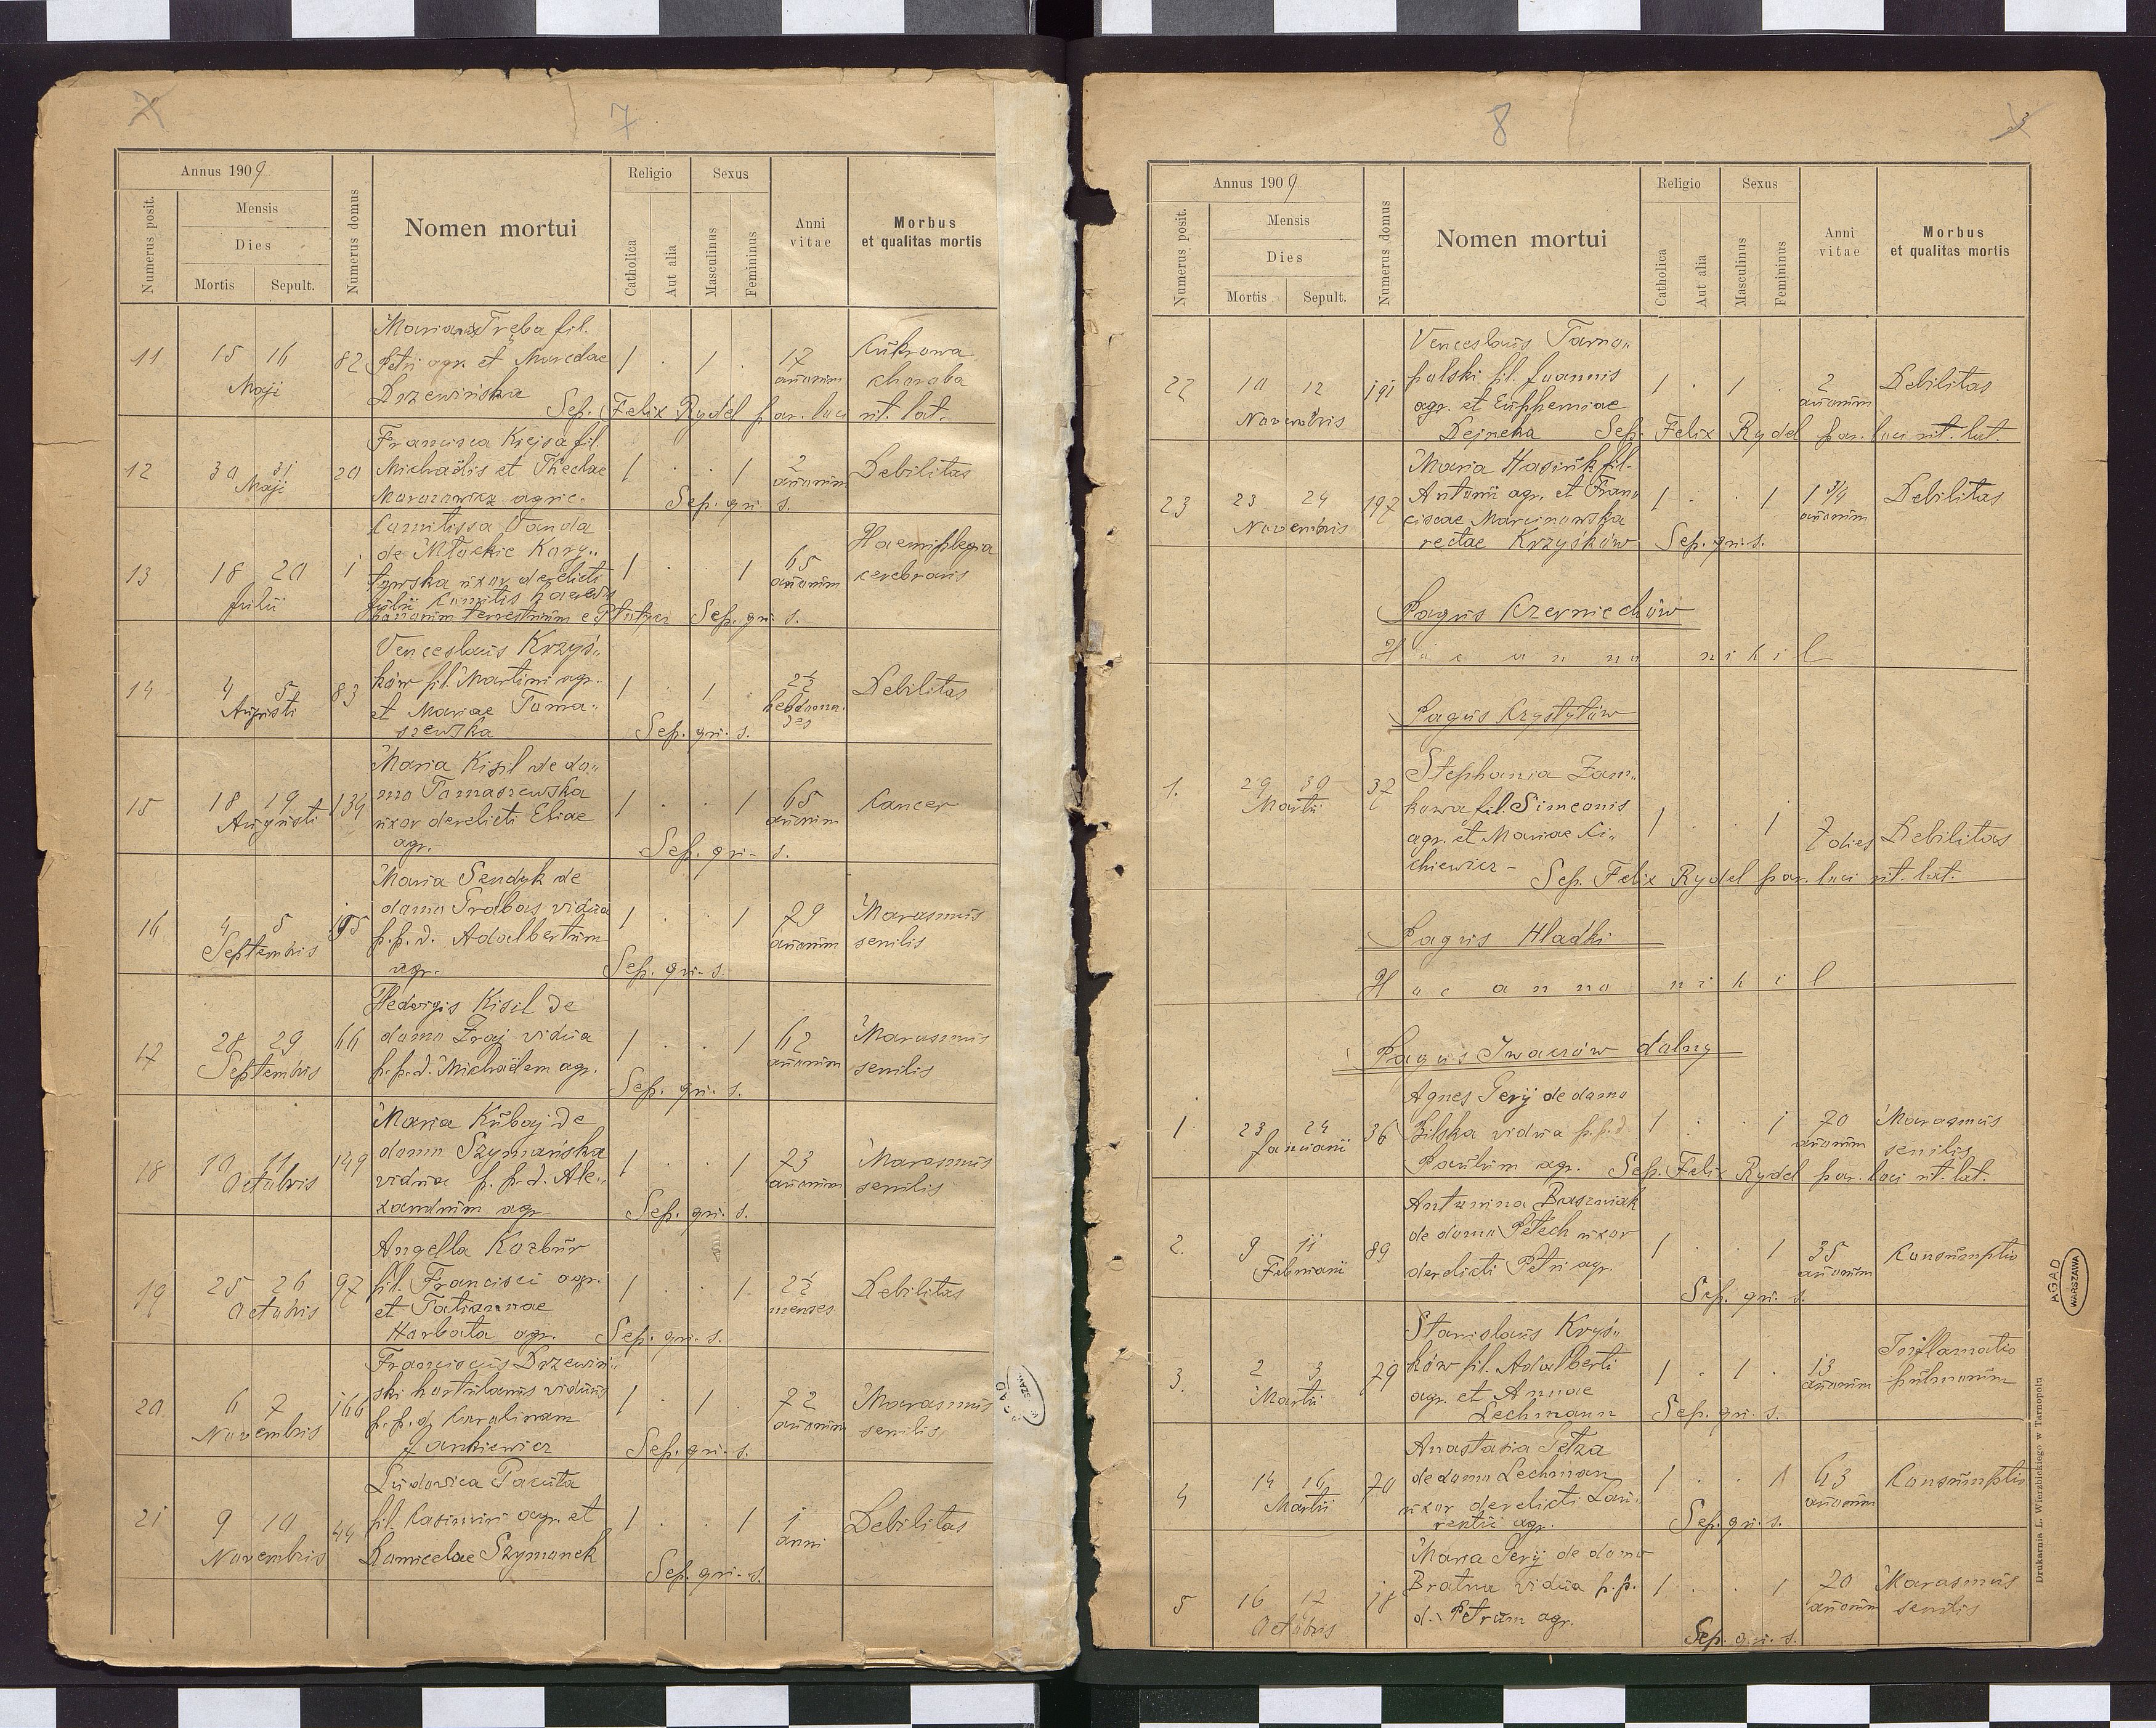 7
Annus 1909
Numerus posit.
Mensis
Dies
Mortis
Sepult.
Numerus domus
Nomen mortui
Religio
Catholica
Aut alia
Sexus
Masculinus
Femininus
Anni vitae
Morbus
et qualitas mortis
Marian Tręba fil.
11 15 16 82 Petri agr. et Maredae 1 . 1 . 17 Cukrowa
Maji annorum choroba
Drzewińska Sep. Felix Rydel par. loci rit. lat.
Francisca Kiejsa fil.
12 30 31 20 Michaëlis et Theclae 1 . . 1 2 Debilitas
Maji annorum
Morozowicz agric. Sep. qui s.
Comitissa Vanda
de Młockie Kory„ Haemiplegia
13 18 20 1 towska uxor derelicti 1 . . 1 65 cerebraris
Julii annorum
Julii Comitis haeredis
bonorum terrestrium e Płotycz Sep. qui s.
Venceslaus Krzyś„
14 4 5 83 ków fil. Martini agr. 1 . 1 . 2½ Debilitas
Augusti et Mariae Toma„ hebdomades
szewska Sep. qui s.
Maria Kisil de do„
15 18 19 139 mo Tomaszewska 1 . . 1 65 Cancer
Augusti uxor derelicti Eliae annorum
agr. Sep. qui s.
Maria Sendyk de
16 4 5 195 domo Grabas vidua 1 . . 1 79 Marasmus
Septembris p.p.d. Adalbertum annorum senilis
agr. Sep. qui s.
Hedvigis Kisil de
17 28 29 66 domo Zraj vidua 1 . . 1 62 Marasmus
Septembris p.p.d. Michaëlem agr. annorum senilis
Sep. qui s.
Maria Kubaj de
18 10 11 149 domo Szymańska 1 . . 1 73 Marasmus
Octobris vidua p.p.d. Ale„ annorum senilis
xandrum agr Sep. qui s.
Angella Kozbur
19 25 26 97 fil. Francisci agr. 1 . . 1 2½ Debilitas
Octobris et Tatiannae menses
Horbata agr. Sep. qui s.
Franciscus Drzewiń„
20 6 7 166 ski hortulanus viduus 1 . 1 . 72 Marasmus
Novembris p.p.d. Carolinam annorum senilis
Jankiewicz Sep. qui s.
Ludovica Pacuta
21 9 10 44 fil. Casimiri agr. et 1 . . 1 1 Debilitas
Novembris Domicelae Szymonek anni
Sep. qui s.
8
Annus 1909
Numerus posit.
Mensis
Dies
Mortis
Sepult.
Numerus domus
Nomen mortui
Religio
Catholica
Aut alia
Sexus
Masculinus
Femininus
Anni vitae
Morbus
et qualitas mortis
Venceslaus Tarno„
22 10 12 191 polski fil. Joannis 1 . 1 . 2 Debilitas
Novembris agr. et Euphemiae annorum
Dejneka Sep. Felix Rydel par. loci rit. lat.
Maria Hasiuk fil.
23 23 24 197 Antonii agr. et Fran„ 1 . . 1 1 3/4 Debilitas
Novembris ciscae Marcinowska annorum
rectae Krzyśków Sep. qui s.
Pagus Czerniechów
Hac anno nihil
Pagus Czystyłów
Stephania Zam„
1. 29 30 37 kowa fil. Simeonis
Martii agr. et Mariae Ci„ 1 . . 1 7 dies Debilitas
chiewicz – Sep. Felix Rydel par. loci rit. lat.
Pagus Hładki
Hoc anno nihil
Pagus Iwaczów dolny
Agnes Gerij de domo
1. 23 24 36 Bilska vidua p.p.d. 1 . . 1 70 Marasmus
Januarii annorum senilis
Paulum agr. Sep. Felix Rydel par. loci rit. lat.
Antonina Braszniak
2. 9 11 89 de domo Petech uxor 1 . . 1 35 Consumptio
Februarii derelicti Petri agr. annorum
Sep. qui s.
Stanislaus Krys„
3. 2 3 79 ków fil. Adalberti 1 . 1 . 13 Inflamatio
Martii agr. et Annae annorum pulmonum
Lechmann Sep. qui s.
Anastasia Petza
4 14 16 70 de domo Lechman 1 . . 1 63 Consumptio
Martii uxor derelicti Lau„ annorum
rentii agr. Sep. qui s.
Maria Gerij de domo
5 16 17 18 Bratna vidua p.p. 1 . . 1 70 Marasmus
Octobris d. Petrum agr. annorum senilis
Sep. qui s.
AGAD
WARSZAWA
Drukarnia L. Wierzbickiego w Tarnopolu